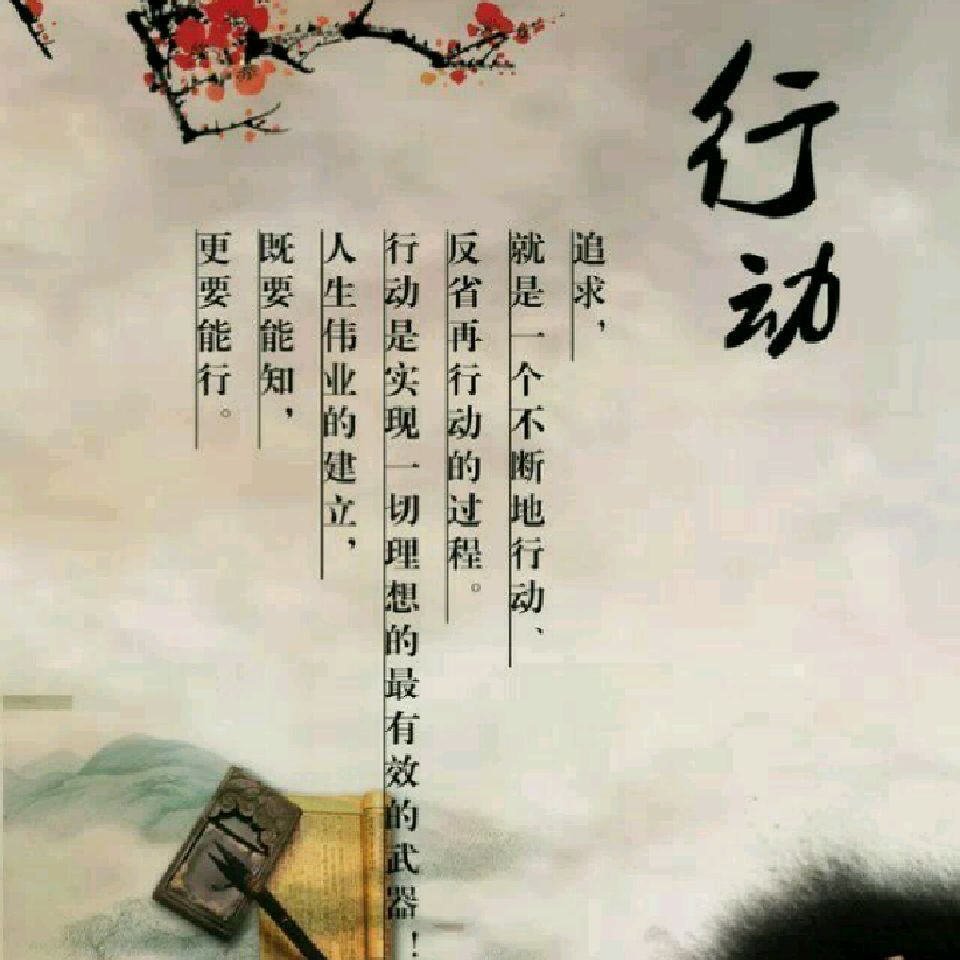 行动
追求，
就是一个不断地行动、
反省再行动的过程。
行动是实现一切理想的最有效的武器！
人生伟业的建立，
既要能知，
更要能行。